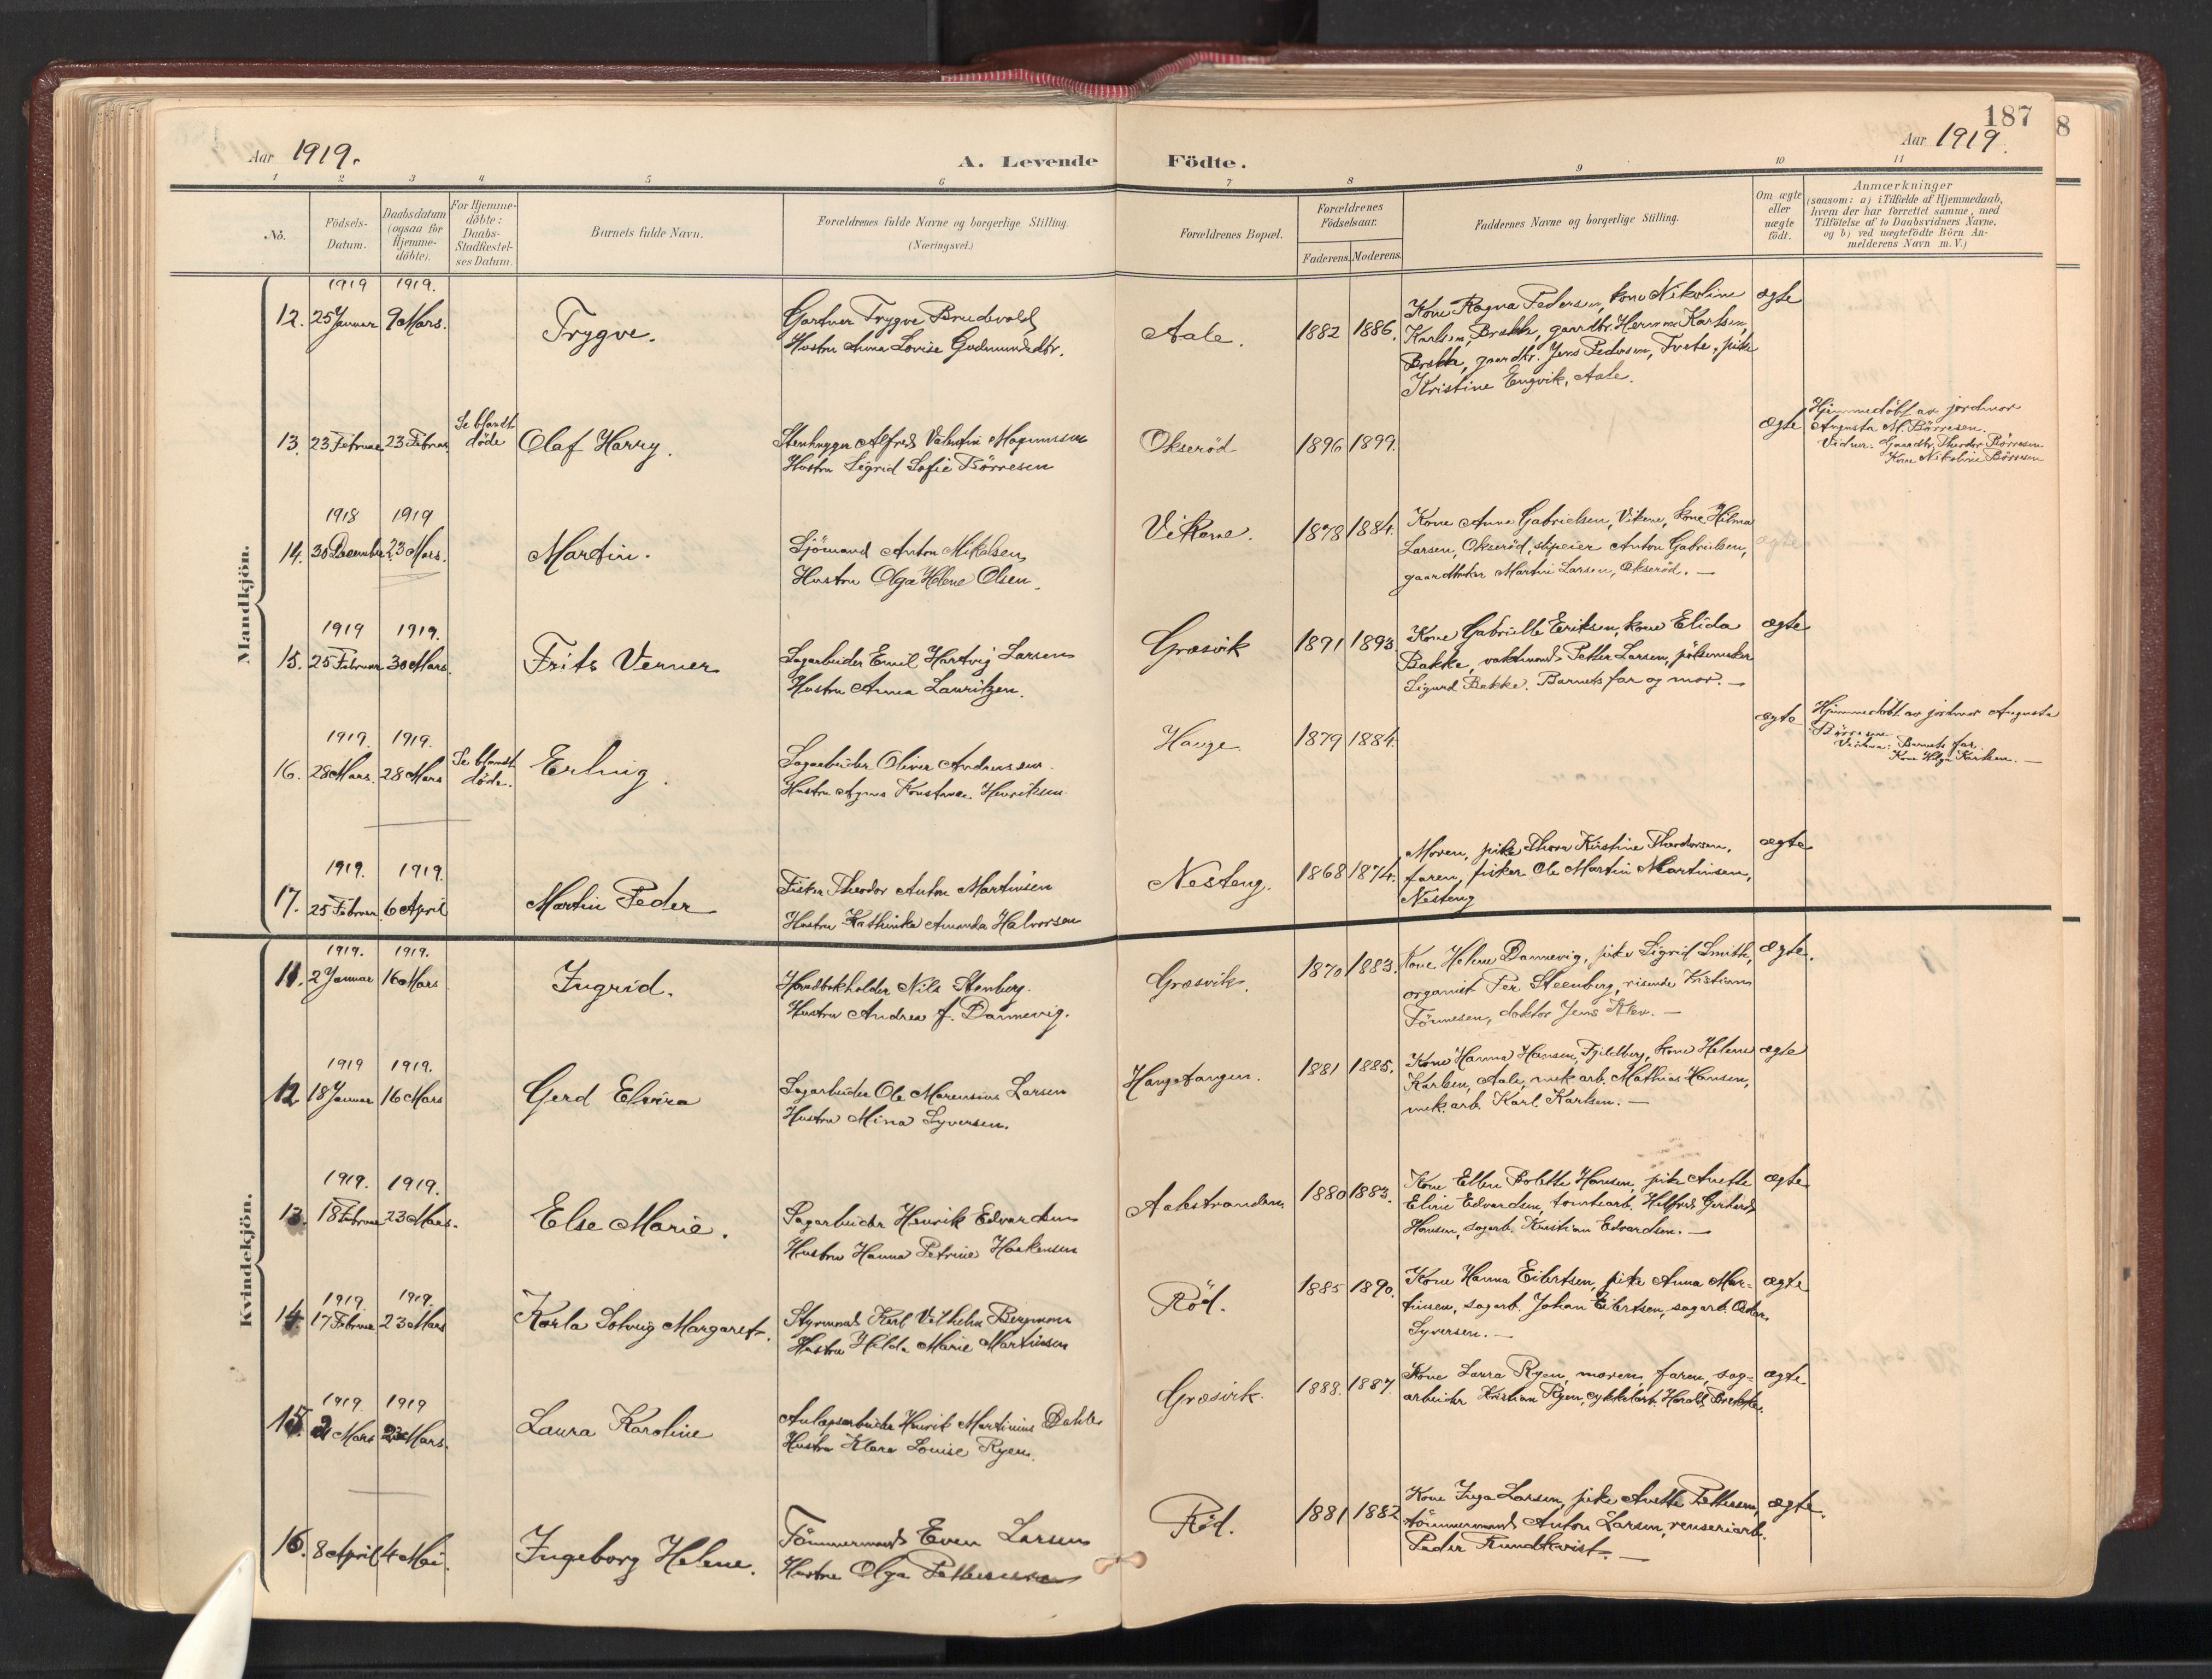 187
8
Aar 1919.
A. Levende Födte.
Aar 1919.
1 2 3 4 5 6 7 8 9 10 11
No.
Födsels-
Datum.
Daabsdatum
(ogsaa for
Hjemme-
döbte).
For Hjemme-
döbte:
Daabs-
Stadfæstel-
ses Datum.
Barnets fulde Navn.
Forældrenes fulde Navne og borgerlige Stilling.
(Næringsvei.)
Forældrenes Bopæl.
Forældrenes
Födselsaar.
Faderens. Moderens.
Faddernes Navne og borgerlige Stilling.
Om ægte
eller
uægte
födt.
Anmærkninger
(saasom: a) i Tilfælde af Hjemmedaab,
hvem der har forrettet samme, med
Tilföielse af to Daabsvidners Navne,
og b) ved uægtefödte Börn An-
melderens Navn m. V.)
Mandkjön.
1919 1919.
12. 25 Januar 9 Mars.
Trygve.
Gartner Trygve Brudevold
Hustru Anna Lovise Gudmundsdtr.
Aale.
1882 1886.
Kone Ragna Pedersen, kone Nikoline
Karlsen, Brekke, gaardbr. Herman Karlsen,
Brekke, gaardbr. Jens Pedersen, Tvete, pike
Kristine Engvik, Aale.
ægte
13. 23 Februar 23 Februar
Se blandt
døde
Olaf Harry.
Stenhugger Alfred Valentin Magnussen
Hustru Sigrid Sofie Börresen
Okseröd
1896 1899.
ægte
Hjemmedöbt av jordmor
Augusta M. Börresen.
Vidner: Gaardbr. Theodor Börresen
Kone Nikoline Börresen
1918 1919
14. 30 December 23 Mars.
Martin.
Sjömand Anton Mikalsen
Hustru Olga Helene Olsen.
Vikene.
1878 1884.
Kone Anna Gabrielsen, Vikene, kone Hilma
Larsen, Okseröd, Anton Gabrielsen,
gaardbruker Martin Larsen, Okseröd. —
ægte
1919 1919.
15. 25 Februar 30 Mars.
Frits Verner
Sagarbeider Emil Hartvig Larsen
Hustru Anna Lauritzen.
Græsvik
1891 1893
Kone Gabrielle Eriksen, kone Elida
Bakke, vaktmand Petter Larsen, pölsemaker
Sigurd Bakke. Barnets far og mor. —
ægte
1919. 1919.
16. 28 Mars. 28 Mars
Se blandt
döde.
Erling.
Sagarbeider Oliver Andreassen.
Hustru Agnes Konstanse Henriksen.
Hauge.
1879 1884.
ægte
Hjemmedöbt av jordmor Augusta
Börresen.
Vidner: Barnets far.
Kone Helga Karlsen. —
1919. 1919.
17. 25 Februar 6 April
Martin Peder
Fisker Theodor Anton Martinsen
Hustru Kathinka Amanda Halvorsen
Nesteng.
1868 1874.
Moren, pike Thora Kirstine Theodorsen,
faren, fisker Ole Martin Martinsen,
Nesteng
ægte
Kvindekjön.
1919. 1919.
11. 2 Januar 16 Mars
Ingrid.
Handbokholder Nils Stenberg.
Hustru Andrea f. Dannevig.
Græsvik.
1870 1883.
Kone Helene Dannevig, pike Sigrid Smith,
organist Per Steenberg, reisende Kristian
Tönnesen, doktor Jens Klev. —
ægte.
1919 1919.
12 18 Januar 16 Mars
Gerd Elvira
Sagarbeider Ole Marensius Larsen
Hustru Mina Syversen.
Haugetangen.
1881 1885.
Kone Hanna Hansen, Fjeldberg, kone Helene
Karlsen, Aale, mek. arb. Mathias Hansen,
mek. arb. Karl Karlsen. —
ægte
1919. 1919.
13. 18 Februar 23 Mars.
Else Marie.
Sagarbeider Henrik Edvardsen
Hustru Hanna Petrine Haakensen
Aalestranden.
1880 1883.
Kone Ellen Bolette Hansen, pike Anette
Eline Edvardsen, tomtearb. Hilfred Gerhard
Hansen, sagarb. Kristian Edvardsen. —
ægte
1919. 1919.
14. 17 Februar 23 Mars
Karla Solveig Margaret.
Styrmand Karl Vilhelm Bergmann
Hustru Hilda Marie Martinsen
Röd.
1885 1890.
Kone Hanna Eilertsen, pike Anna Mar-
tinsen, sagarb. Johan Eilertsen, sagarb. Oskar
Syversen. —
ægte
1919. 1919
15. 2 Mars 23 Mars.
Laura Karoline
Anlægsarbeider Henrik Martinius Dahle
Hustru Klara Louise Ryen.
Græsvik.
1888. 1887.
Kone Laura Ryen, moren, faren, sag-
arbeider Kristian Ryen, cykkelarb. Harald Brekke.
ægte
16. 8 April 4 Mai.
Ingeborg Helene.
Tömmermand Even Larsen
Hustru Olga Pettersen
Röd.
1881 1882
Kone Inga Larsen, pike Anette Pettersen,
tömmermand Anton Larsen, renseriarb.
Peder Rundkvist. —
ægte.